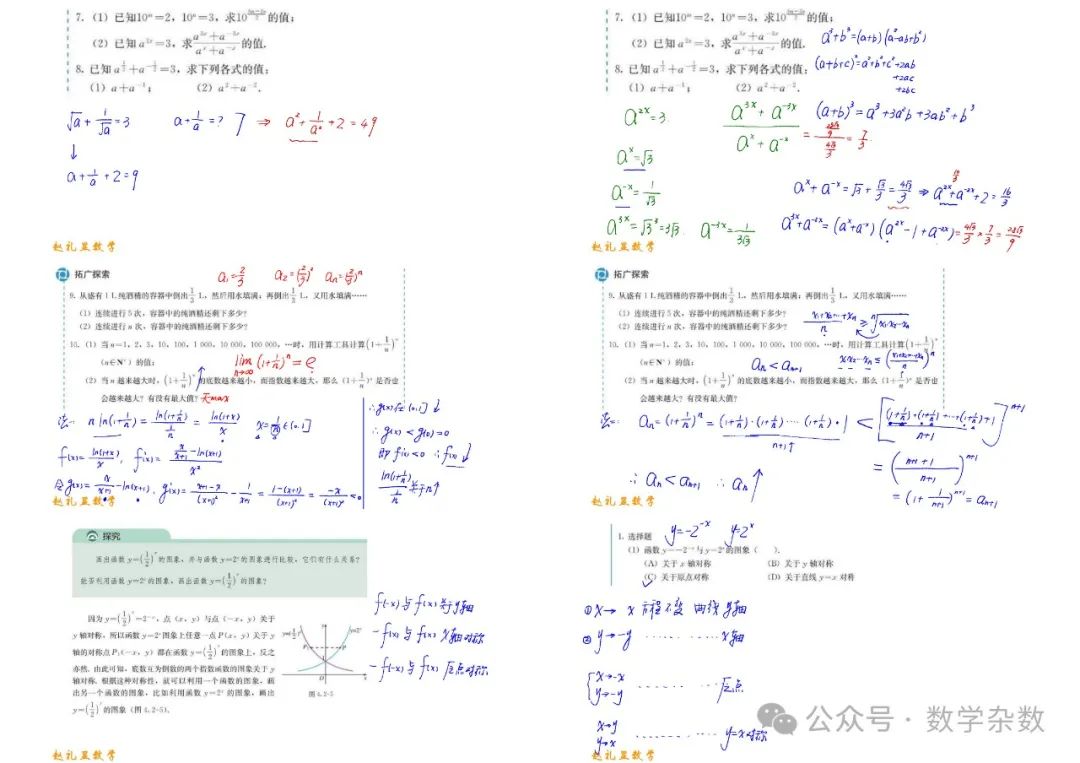 7.（1）已知10ᵐ=2，10ⁿ=3，求10^((3m-2n)/2)的值；
（2）已知a²ˣ=3，求(a³ˣ+a⁻³ˣ)/(aˣ+a⁻ˣ)的值.
8. 已知a^(1/2)+a^(-1/2)=3，求下列各式的值：
（1）a+a⁻¹； （2）a²+a⁻².
√a+1/√a=3 a+1/a=? 7 ⇒ a²+1/a²+2=49
↓
a+1/a+2=9
赵礼显数学
7.（1）已知10ᵐ=2，10ⁿ=3，求10^((3m-2n)/2)的值；
（2）已知a²ˣ=3，求(a³ˣ+a⁻³ˣ)/(aˣ+a⁻ˣ)的值. a³+b³=(a+b)(a²-ab+b²)
8. 已知a^(1/2)+a^(-1/2)=3，求下列各式的值： (a+b+c)²=a²+b²+c²+2ab
+2ac
（1）a+a⁻¹； （2）a²+a⁻². +2bc
a²ˣ=3 (a³ˣ+a⁻³ˣ)/(aˣ+a⁻ˣ) =(28√3/9)/(4√3/3)=7/3 (a+b)³=a³+3a²b+3ab²+b³
aˣ=√3
a⁻ˣ=1/√3 aˣ+a⁻ˣ=√3+√3/3=4√3/3 ⇒ a²ˣ+a⁻²ˣ+2=16/3
a³ˣ=√3³=3√3. a⁻³ˣ=1/(3√3) =(aˣ+a⁻ˣ)(a²ˣ-1+a⁻²ˣ)=4√3/3×7/3=28√3/9
赵礼显数学
拓广探索 a₁=2/3 a₂=(2/3)² aₙ=(2/3)ⁿ
9. 从盛有1 L纯酒精的容器中倒出1/3 L，然后用水填满；再倒出1/3 L，又用水填满……
（1）连续进行5次，容器中的纯酒精还剩下多少？
（2）连续进行n次，容器中的纯酒精还剩下多少？
10.（1）当n=1，2，3，10，100，1 000，10 000，100 000，…时，用计算工具计算(1+1/n)ⁿ
（n∈N*）的值； lim n→∞ (1+1/n)ⁿ=e
（2）当n越来越大时，(1+1/n)ⁿ的底数越来越小，而指数越来越大，那么(1+1/n)ⁿ是否也
会越来越大？有没有最大值？ 无max
法一 n ln(1+1/n)=ln(1+1/n)/(1/n)=ln(1+x)/x x=1/n∈(0,1]
f(x)=ln(1+x)/x, f'(x)=(x/(x+1)-ln(x+1))/x²
令g(x)=x/(x+1)-ln(x+1), g'(x)=(x+1-x)/(x+1)²-1/(x+1)=(1-(x+1))/(x+1)²=-x/(x+1)²<0
∴g(x)在(0,1]↓
∴g(x)<g(0)=0
即f'(x)<0 ∴f(x)↓
ln(1+1/n)/(1/n)关于n↑
赵礼显数学
拓广探索
9. 从盛有1 L纯酒精的容器中倒出1/3 L，然后用水填满；再倒出1/3 L，又用水填满……
（1）连续进行5次，容器中的纯酒精还剩下多少？ (x₁+x₂+…+xₙ)/n≥ⁿ√(x₁x₂…xₙ)
（2）连续进行n次，容器中的纯酒精还剩下多少？
10.（1）当n=1，2，3，10，100，1 000，10 000，100 000，…时，用计算工具计算(1+1/n)ⁿ
（n∈N*）的值； aₙ<aₙ₊₁ x₁x₂…xₙ≤((x₁+x₂+…+xₙ)/n)ⁿ
（2）当n越来越大时，(1+1/n)ⁿ的底数越来越小，而指数越来越大，那么(1+1/n)ⁿ是否也
会越来越大？有没有最大值？
法二: aₙ=(1+1/n)ⁿ=(1+1/n)·(1+1/n)····(1+1/n)·1 <[((1+1/n)+(1+1/n)+…+(1+1/n)+1)/(n+1)]ⁿ⁺¹
n+1个
=((n+1+1)/(n+1))ⁿ⁺¹
∴aₙ<aₙ₊₁ ∴aₙ↑ =(1+1/(n+1))ⁿ⁺¹=aₙ₊₁
赵礼显数学
探究
画出函数y=(1/2)ˣ的图象，并与函数y=2ˣ的图象进行比较，它们有什么关系？
能否利用函数y=2ˣ的图象，画出函数y=(1/2)ˣ的图象？
因为y=(1/2)ˣ=2⁻ˣ，点（x，y）与点（-x，y）关于
y轴对称，所以函数y=2ˣ图象上任意一点P（x，y）关于y
轴的对称点P₁（-x，y）都在函数y=(1/2)ˣ的图象上，反之
亦然. 由此可知，底数互为倒数的两个指数函数的图象关于y
轴对称. 根据这种对称性，就可以利用一个函数的图象，画
出另一个函数的图象，比如利用函数y=2ˣ的图象，画出
y=(1/2)ˣ的图象（图4.2-5）.
y=(1/2)ˣ y y=2ˣ
P₁ P
1
O x
图4.2-5
f(-x)与f(x)关于y轴
-f(x)与f(x) x轴对称
-f(-x)与f(x) 原点对称
赵礼显数学
1. 选择题 y=-2⁻ˣ y=2ˣ
（1）函数y=-2⁻ˣ与y=2ˣ的图象（ ）.
（A）关于x轴对称 （B）关于y轴对称
（C）关于原点对称 （D）关于直线y=x对称
①x→-x 方程不变 曲线y轴
②y→-y ………… x轴
x→-x
y→-y ………… 原点
x→y
y→x ………… y=x对称
赵礼显数学
公众号·数学杂数